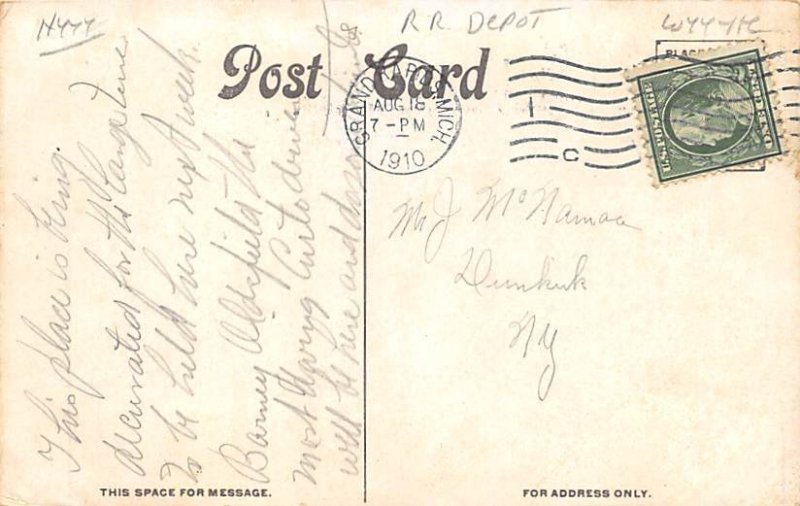 R.R. DEPOT
Post Card
GRAND RAPIDS, MICH.
AUG 18
7-PM
1910
This place is being
decorated for the large time
to be held here next week.
Barney Oldfield the
most daring auto driver
will be here and does
Mr J McNamara
Dunkirk
NY
THIS SPACE FOR MESSAGE.
FOR ADDRESS ONLY.